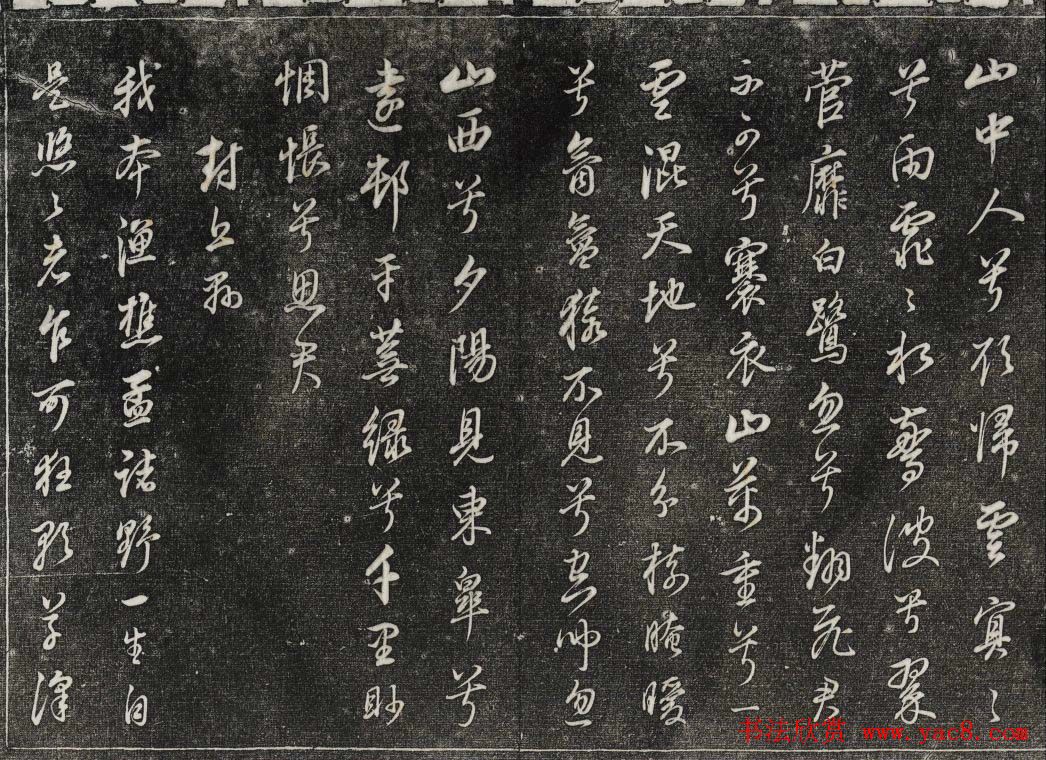 山中人兮欲歸雲冥〻
兮雨霏〻水驚波兮翠
菅靡白鷺忽兮翻飛君
不可兮褰衣山萬重兮一
雲混天地兮不分樹晻曖
兮氛氳猿不見兮空聞忽
山西兮夕陽見東皋兮
遠邨平蕪綠兮千里眇
惆悵兮思君
封丘縣
我本漁樵孟諸野一生自
是悠〻者乍可狂歌草澤
书法欣赏 www.yac8.com